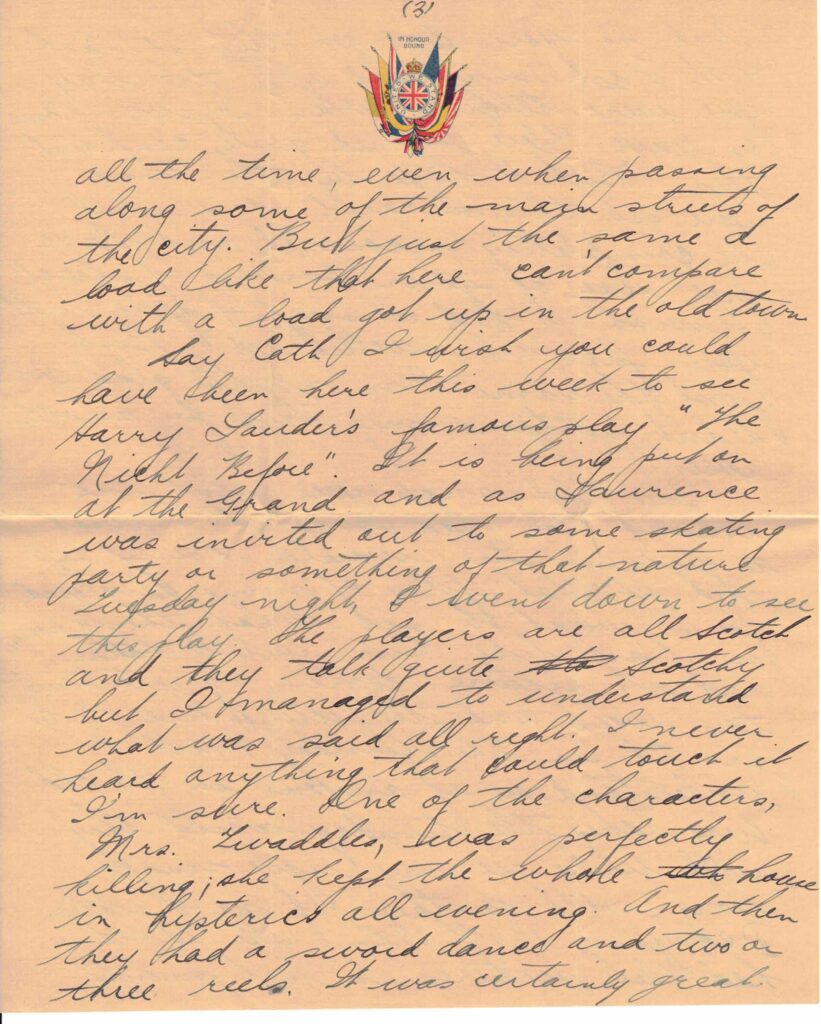 (3)
IN HONOUR
BOUND
UNITED WE STAND
all the time, even when passing
along some of the main streets of
the city. But just the same a
load like that here can't compare
with a load got up in the old town
Say Cath I wish you could
have been here this week to see
Harry Lauder's famous play "The
Nicht Before". It is being put on
at the Grand and as Lawrence
was invited out to some skating
party or something of that nature
Tuesday night, I went down to see
this play. The players are all Scotch
and they talk quite Scotchy
but I managed to understand
what was said all right. I never
heard anything that could touch it
I'm sure. One of the characters,
Mrs. Twaddles, was perfectly
killing; she kept the whole house
in hysterics all evening. And then
they had a sword dance and two or
three reels. It was certainly great.